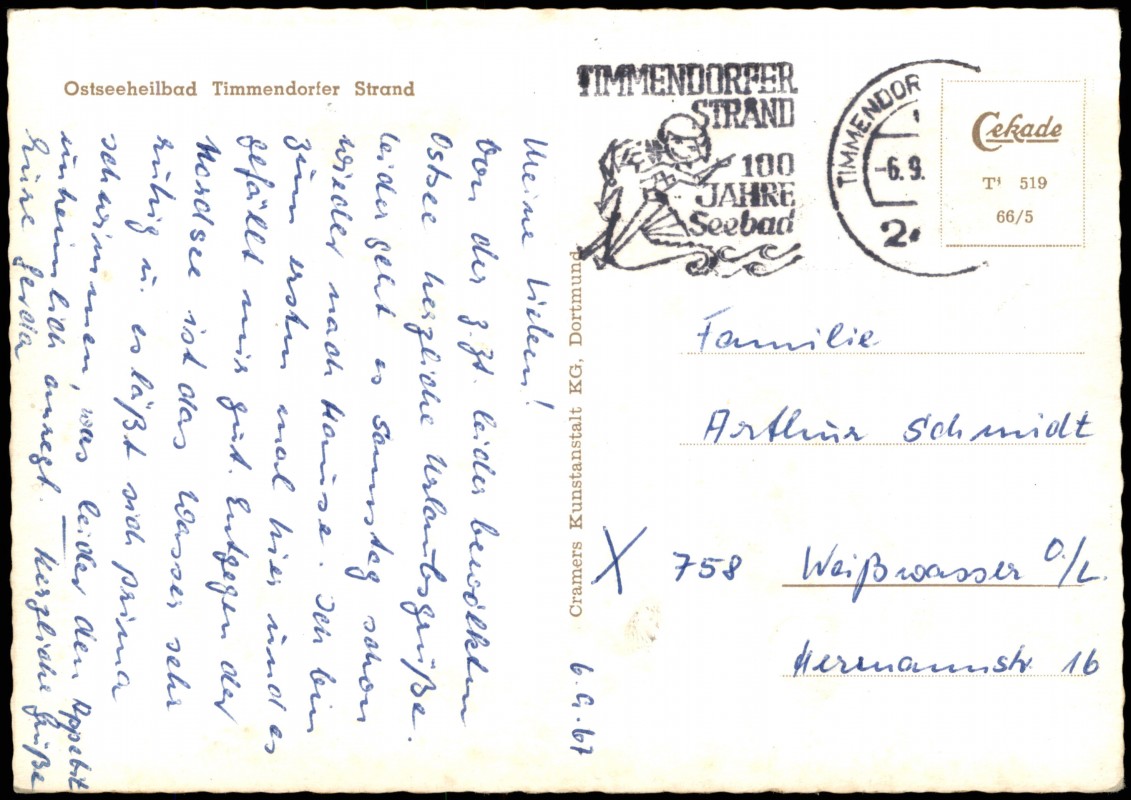 Ostseeheilbad Timmendorfer Strand
Meine Lieben!
Von der z.Zt. leider bewölkten
Ostsee herzliche Urlaubsgrüße.
Leider geht es Samstag schon
wieder nach Hause. Ich bin
zum ersten mal hier und es
gefällt mir gut. Entgegen der
Nordsee ist das Wasser sehr
ruhig u. es läßt sich prima
schwimmen, was leider den Appetit
unheimlich anregt. – Herzliche Grüße
Eure
6.9.67
Cramers Kunstanstalt KG, Dortmund
TIMMENDORFER
STRAND
100
JAHRE
Seebad
TIMMENDOR
-6.9.
2
Cekade
Ti 519
66/5
Familie
Arthur Schmidt
X 758 Weißwasser O/L.
Hermannstr. 16